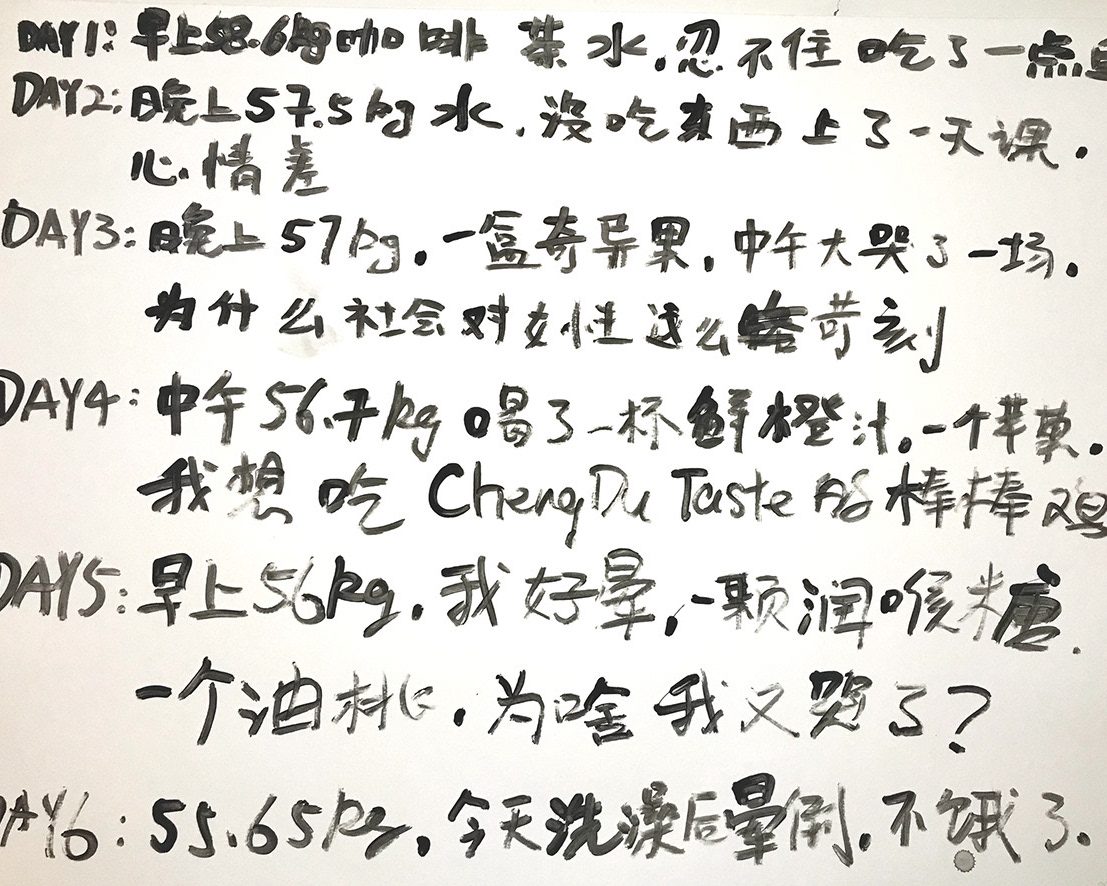 DAY1: 早上58.6kg咖啡 茶 水.忍不住吃了一点
DAY2: 晚上57.5kg 水.没吃东西上了一天课.
心情差
DAY3: 晚上57kg.一盒奇异果.中午大哭了一场.
为什么社会对女性这么苛刻
DAY4: 中午56.7kg 喝了一杯鲜橙汁.一个苹果.
我想吃 ChengDu Taste 的棒棒鸡
DAY5: 早上56kg.我好晕,一颗润喉糖.
一个油桃.为啥我又哭了?
DAY6: 55.65kg.今天洗澡后晕倒.不饿了.